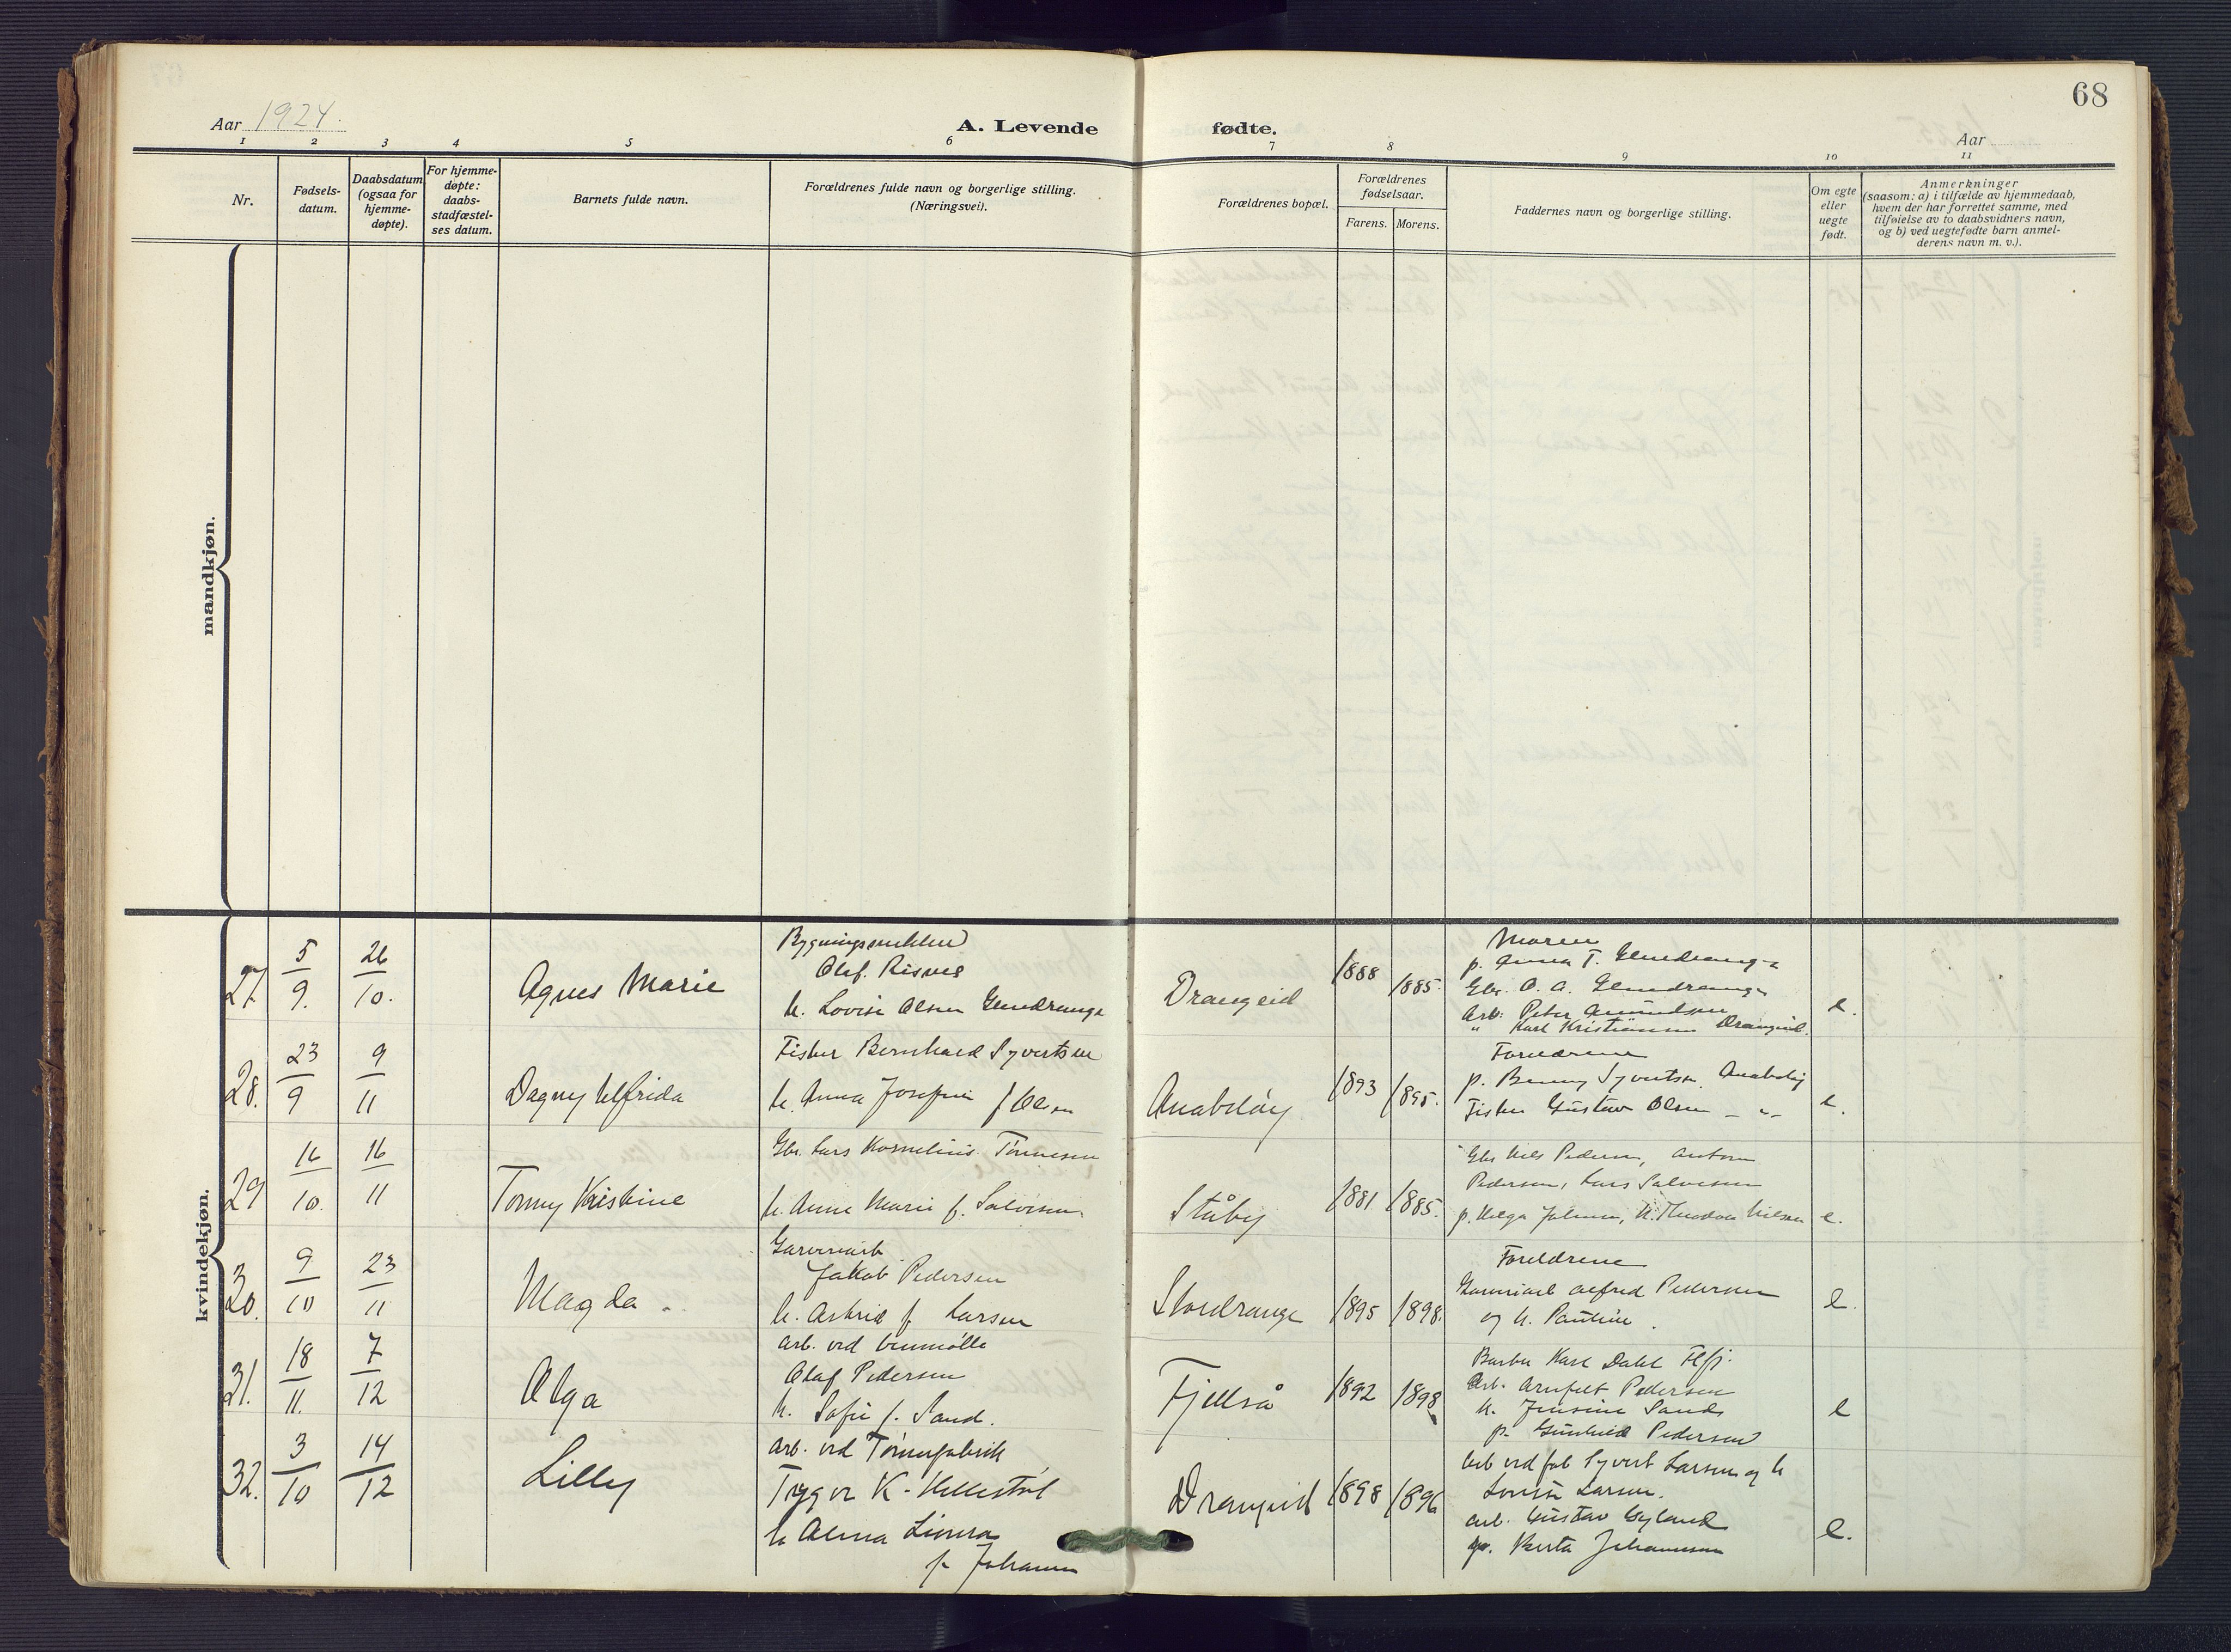 68
Aar 1924.
A. Levende fødte.
Aar
1 2 3 4 5 6 7 8 9 10 11
Nr.
Fødsels-
datum.
Daabsdatum
(ogsaa for
hjemme-
døpte).
For hjemme-
døpte:
daabs-
stadfæstel-
ses datum.
Barnets fulde navn.
Forældrenes fulde navn og borgerlige stilling.
(Næringsvei).
Forældrenes bopæl.
Forældrenes
fødselsaar.
Farens. Morens.
Faddernes navn og borgerlige stilling.
Om egte
eller
uegte
født.
Anmerkninger
(saasom: a) i tilfælde av hjemmedaab,
hvem der har forrettet samme, med
tilføielse av to daabsvidners navn,
og b) ved uegtefødte barn anmel-
derens navn m. v.).
mandkjøn.
kvindekjøn.
27. 5/9. 26/10. Agnes Marie
Olaf. Risnes
h. Lovise Olsen
Drangeid 1888 1885.
Moren
p. Anna T.
Gbr. O. A.
Arb. Peter Amundsen
" Karl Kristiansen Drangeid.
e.
28. 23/9 9/11 Dagny Alfrida
Fisker Bernhard Syvertsen
h. Anna Josefine f Olsen
Anabeløy 1893 1895.
Foreldrene
p. Benny Syvertsen. Anabeløy
Fisker Gustav Olsen - " -
e.
29 16/10. 16/11 Tomy Kristine
Gbr. Lars Kornelius Tønnesen
h. Anne Marie f. Salvesen
Ståby 1881 1885.
Gbr Nils Pedersen, Anton
Pedersen, Lars Salvesen
p. Helga h. Theodora Nilsen
e.
30. 9/10 23/11 Magda.
Garveriarb
Jakob Pedersen
h. Astrid f Larsen
Stordrange 1895 1898.
Foreldrene
Garveriarb Alfred Pedersen
og h. Pauline.
e.
31. 18/11. 7/12 Olga
arb. ved
Olaf Pedersen
h. Sofie f. Sand.
Fjellså 1892 1898
Karl Dahl
Arb. Arnfelt Pedersen
h. Jensine Sands
p. Gunhild Pedersen
e
32. 3/10 14/12 Lilly
arb. ved Tønnefabrik
Trygve K. Hellestøl
h Alma
f.
Drangeid 1898 1896
Arb ved fab Syvert Larsen og h
Lovise Larsen.
arb. Gustav Gyland
p. Berta Johannesen
e.